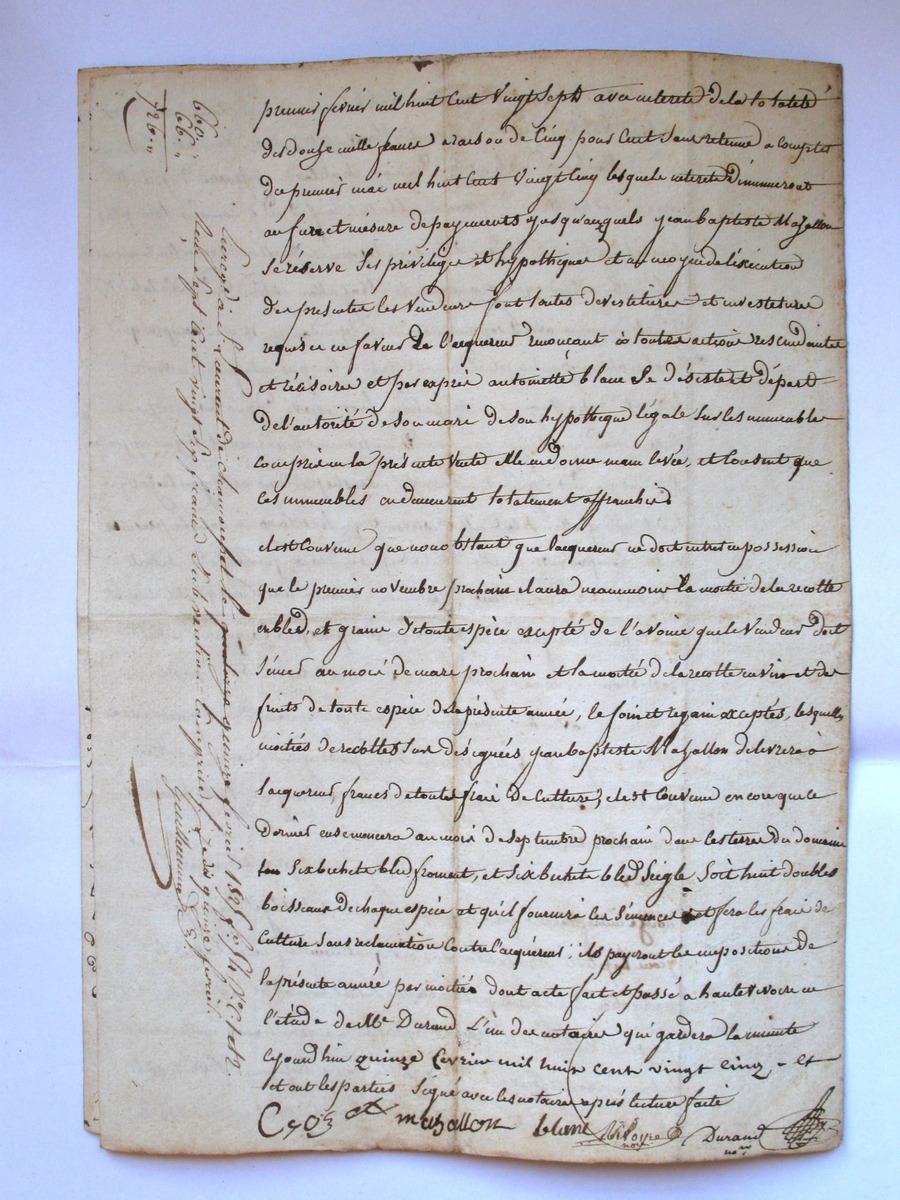 premier fevrier mil huit Cent Vingt Sept avec interets de la totalité
des douze mille francs a raison de Cinq pour Cent sans retenue a compter
du premier mai mil huit Cent Vingt Cinq lesquels interets diminueront
au fur et mesure de payements jusqu'auxquels jean baptiste Mazallon
Se réserve Ses privilege et hypothéques et au moyen de l'exécution
des presentes les Vendeurs font toutes devestitures et investitures
requises en faveur de l'acquereur renoncant à toutes actions rescindantes
et résisoires et par exprés antoinette blanc Se désiste et départ
de l'autorité de Son mari de Son hypothéque légale Sur les immeubles
compris en la présente Vente elle en donne main levée, et Consent que
Ces immeubles en demeurent totalement affranchis
il est Convenu que nonobstant que l'acquereur ne doit entrer en possession
que le premier novembre prochain il aura neanmoins la moitié de la recolte
en bled, et grains de toute espèce excepté de l'avoine que le Vendeur doit
Sémer au mois de mars prochain et la moitié de la recolte en vin et des
fruits de toute espèce de la présente année, le foin et regain exceptés, lesquelles
moitiés de recoltes Sus désignées jean baptiste Mazallon délivrera à
l'acquereur francs de toutes frais de Culture, il est Convenu encore que Ce
dernier ensemencera au mois de Septembre prochain dans les terres du domaine
Six bichets bled froment, et Six bichets bled Seigle Soit huit doubles
boisseaux de chaque espèce et qu'il fournira les Sémences et fera les frais de
Culture Sans reclamation Contre l'acquéreur; ils payeront les impositions de
la présente année par moitiés dont acte fait et passé a hauterivoire en
l'étude de Me Durand L'un des notaires qui gardera la minute
cejourd'hui quinze fevrier mil huit cent vingt cinq - et
et ont les parties Signé avec les notaires après lecture faite
mazallon blanc Durand
not.re
660. "
66. "
726. "
Enregé à St Laurent de chamousset le quinze fevrier 1825
Reçu Sept cent vingt Six francs Subvention Comprise
Guillaume